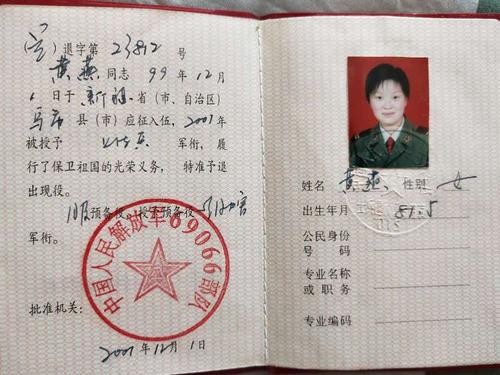 退字第23812号
黄燕同志99年12月
日于新疆省(市、自治区)
县(市)应征入伍,2001年
被授予 军衔,履
行了保卫祖国的光荣义务,特准予退
出现役。
服预备役。授予预备役
军衔。
批准机关:
中国人民解放军69066部队
2001年12月1日
姓名 黄燕 性别 女
出生年月 81.5
公民身份
号码
专业名称
或职务
专业编码